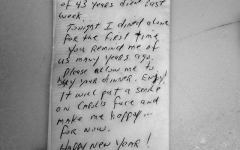 of 43 years died last
week.
Tonight I dined alone
for the first time.
You remind me of
us many years ago.
please allow me to
buy your dinner. Enjoy!
It will put a smile
on Carol's face and
make me happy...
for now.
Happy New Year!